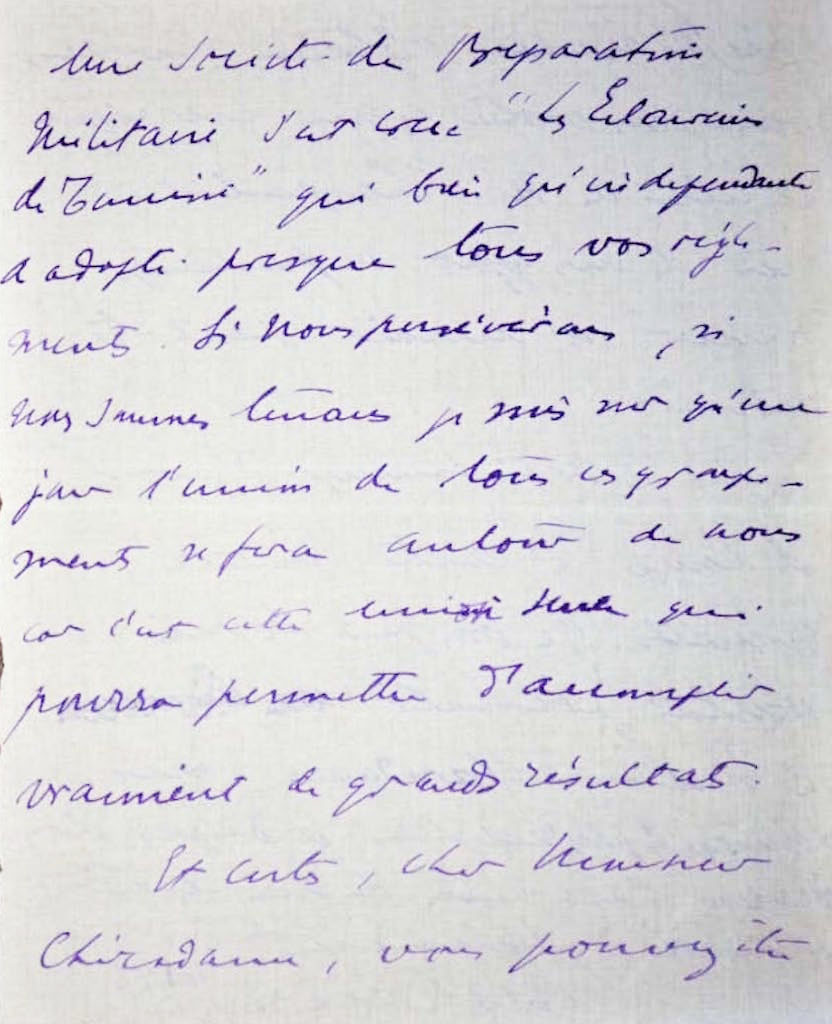 Une Société de Préparation
Militaire s'est créée "Les Eclaireurs
de Tunisie" qui bien qu'indépendante
a adopté presque tous vos règle-
ments. Si nous persévérons, si
nous sommes tenaces je suis sûr qu'un
jour l'union de tous ces groupe-
ments se fera autour de nous
car c'est cette union seule qui
pourra permettre d'accomplir
vraiment de grands résultats.
Et certes, cher Monsieur
vous pouvez être